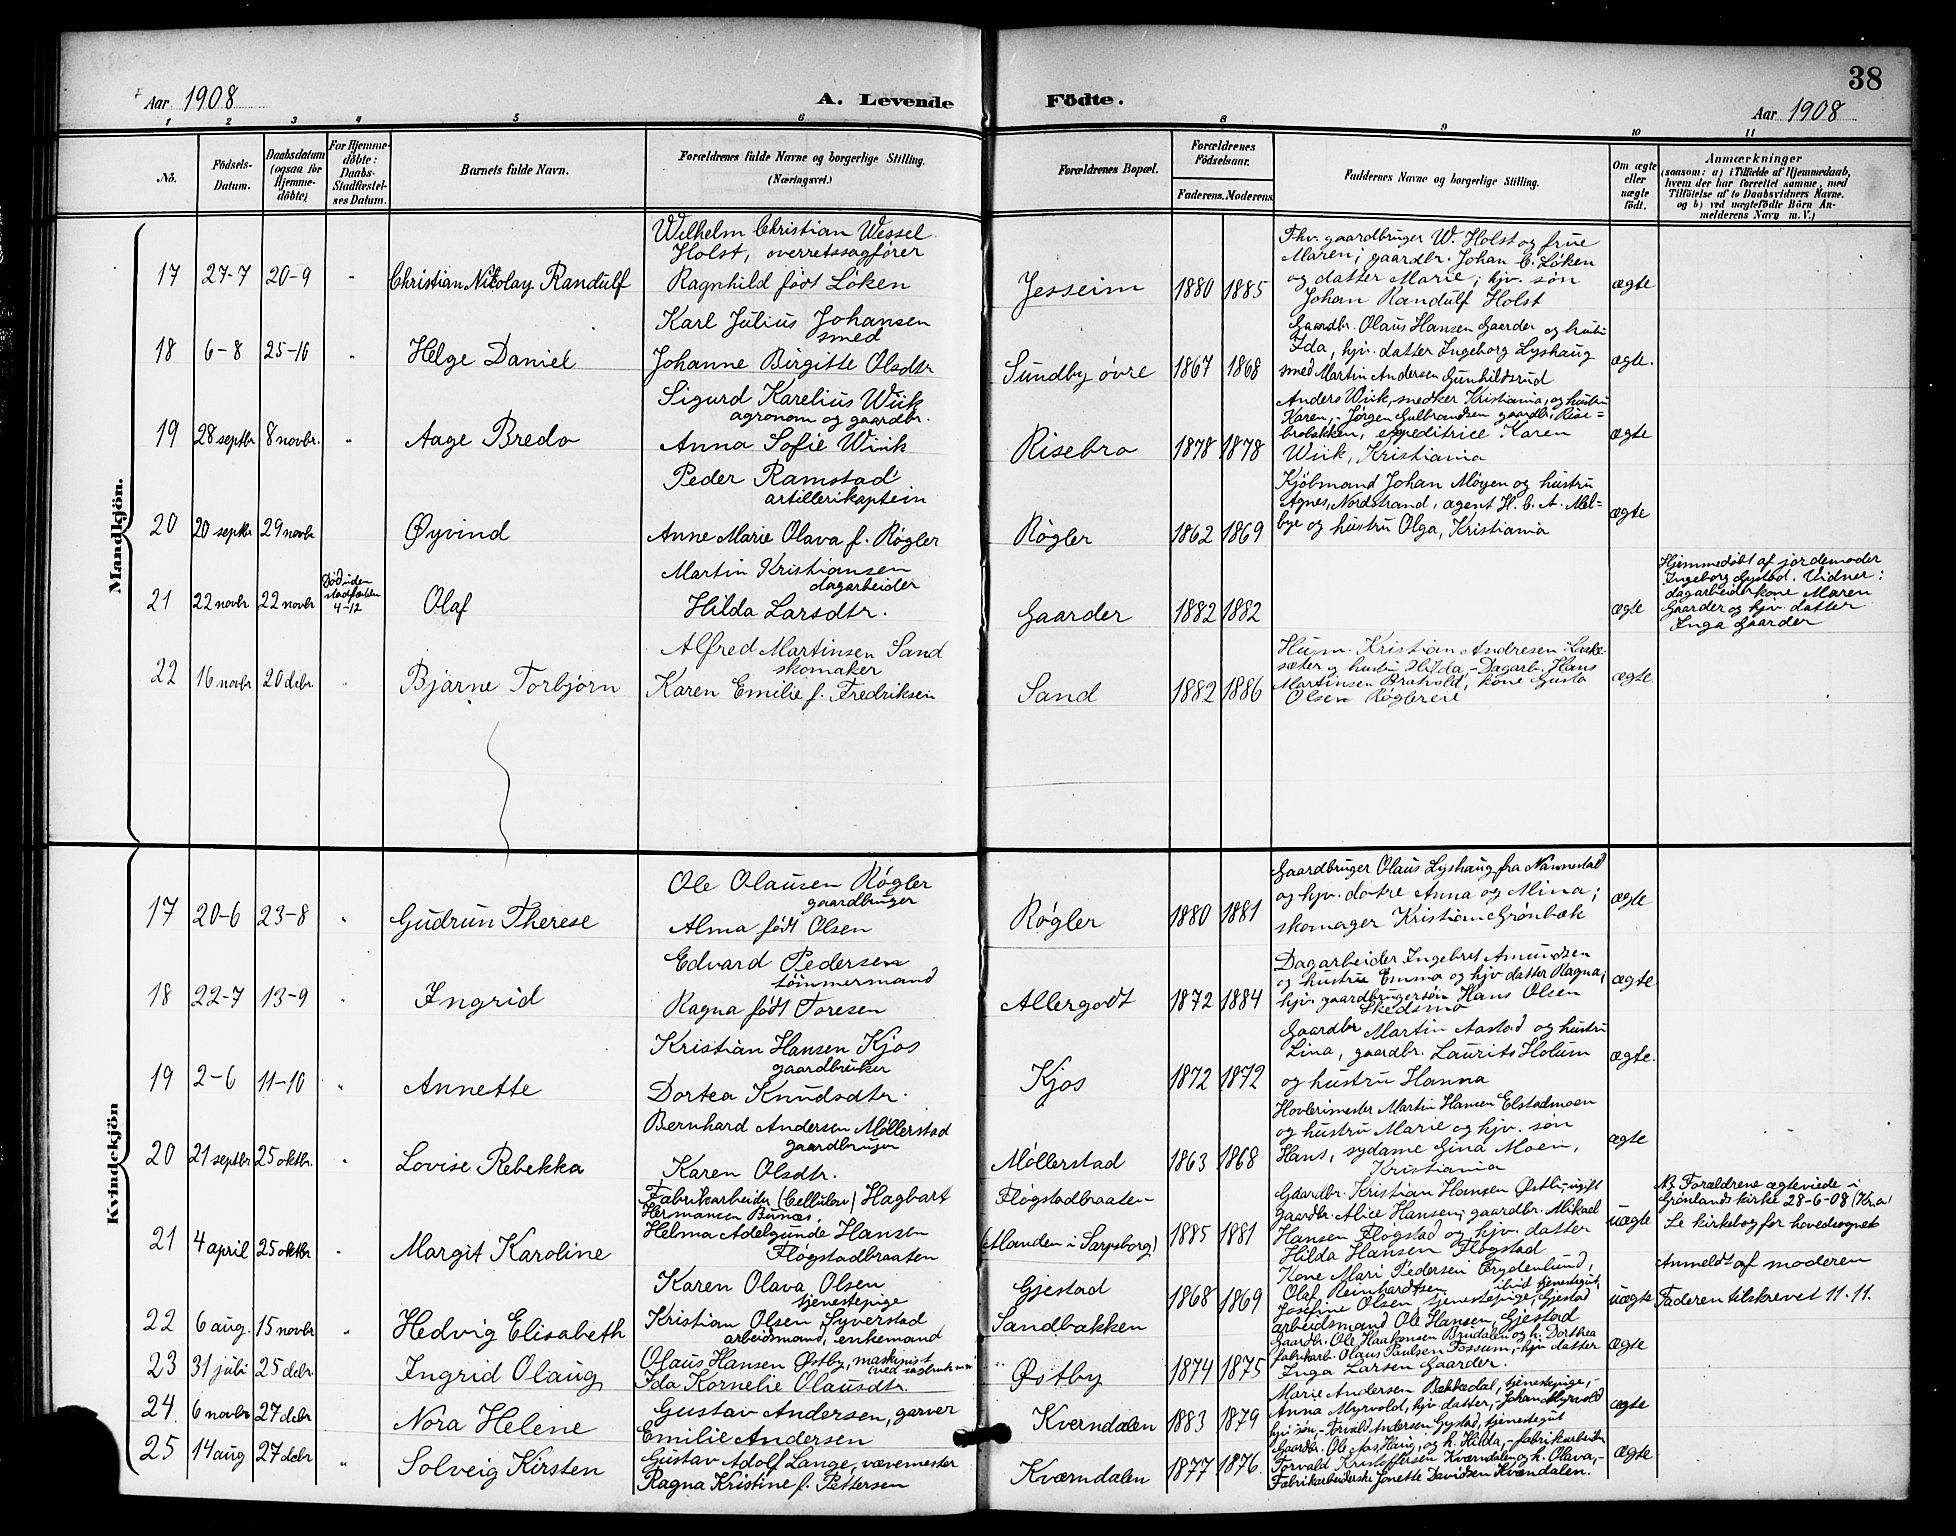 38
Aar 1908
A. Levende
Födte.
Aar 1908
1 2 3 4 5 6 8 9 10 11
No.
Födsels-Datum.
Daabsdatum (ogsaa for Hjemme-döbte)
For Hjemme-döbte: Daabs-Stadfæstel-ses Datum.
Barnets fulde Navn.
Forældrenes fulde Navne og borgerlige Stilling.
(Næringsvei.)
Forældrenes Bopæl.
Forældrenes Födselsaar.
Faderens. Moderens.
Faddernes Navne og borgerlige Stilling.
Om ægte eller uægte födt.
Anmærkninger
(saasom: a) i Tilfælde af Hjemmedaab,
hvem der har forrettet samme, med
Tilföielse af to Daabsvidners Navne.
og b) ved uægtefödte Börn An-
melderens Navn m. V.)
Mandkjön.
17 27-7 20-9 " Christian Nikolay Randulf
Wilhelm Christian Wessel
Holst, overretssagfører
Ragnhild født Løken
Jesseim 1880 1885
Fhv. gaardbruger W. Holst og frue
Maren; gaardbr. Johan C. Løken
og datter Marie; hjv. søn
Johan Randulf Holst
ægte
18 6-8 25-10 " Helge Daniel
Karl Julius Johansen
smed
Johanne Birgitte Olsdtr
Sundby øvre 1867 1868
Gaardbr. Olaus Hansen Gaarder og hustru
Ida, hjv. datter Ingeborg Lyshaug
smed Martin Andersen Gunhildsrud
ægte.
19 28 septbr 8 novbr. " Aage Bredo
Sigurd Karelius Wiik
agronom og gaardbr.
Anna Sofie Wiik
Risebro 1878 1878
Anders Wiik, snedker Kristiania, og hustru
Karen, - Jørgen Gulbrandsen gaardbr. Rise-
brobakken, expeditrice Karen
Wiik, Kristiania
ægte
20 20 septbr 29 novbr Øyvind
Peder Ramstad
artillerikaptein
Anne Marie Olava f. Røgler
Røgler 1862 1869
Kjøbmand Johan Møyen og hustru
Agnes, Nordstrand, agent H. C. A. Mel-
bye og hustru Olga, Kristiania
ægte
21 22 novbr 22 novbr
Død uden
4-12
Olaf
Martin Kristiansen
dagarbeider
Hilda Larsdtr.
Gaarder 1882 1882
ægte
Hjemmedøbt af jordemoder
Ingeborg Gystad. Vidner:
dagarbeiderkone Maren
Gaarder og hjv. datter
Inga Gaarder
22 16 novbr 20 debr. " Bjarne Torbjørn
Alfred Martinsen Sand
skomaker
Karen Emilie f. Fredriksen
Sand 1882 1886
Husm. Kristian Andresen
sæter og hustru Hilda - Dagarb. Hans
Martinsen Brotvold, kone Gusta
Olsen Røglereie
ægte
Kvindekjön
17 20-6 23-8 " Gudrun Therese
Ole Olausen Røgler
gaardbruger
Alma født Olsen
Røgler 1880 1881
Gaardbruger Olaus Lyshaug fra Nannestad
og hjv. døtre Anna og Mina;
skomager Kristian Grønbæk
ægte
18 22-7 13-9 " Ingrid
Edvard Pedersen
tømmermand
Ragna født Toresen
Allergodt 1872 1884
Dagarbeider Ingebret Amundsen
og hustru Emma og hjv datter Ragna;
hjv. gaardbrugersøn Hans Olsen
Skedsmo
ægte
19 2-6 11-10 " Annette
Kristian Hansen Kjos
gaardbruker
Dortea Knudsdtr.
Kjos 1872 1872
Gaardbr Martin Aastad og hustru
Lina, gaardbr. Laurits Holum
og hustru Hanna
ægte.
20 21 septbr 25 oktbr. " Lovise Rebekka
Bernhard Andersen Møllerstad
gaardbruger
Karen Olsdtr.
Møllerstad 1863 1868
Høvlerimester Martin Hansen Elstadmoen
og hustru Marie og hjv. søn
Hans, sydame Gina Moen,
Kristiania
ægte
21 4 april 25 oktbr " Margit Karoline
Fabrikarbeider (Cellulose) Hagbart
Hermansen
Helma Adelgunde Hansen
Fløgstadbraaten
Fløgstadbraaten-
(Manden i Sarpsborg) 1885 1881
Gaardbr. Kristian Hansen Østby, ugift
gaardbr. Alice Hansen; gaardbr. Mikael
Hansen Fløgstad og hjv. datter
Hilda Hansen Fløgstad
uægte
NB. Forældrene ægteviede i
Grønlands kirke 28-6-08 (Kr.a)
Se kirkebog for hovedsognet
Anmeldt af moderen
22 6 aug. 15 novbr " Hedvig Elisabeth
Karen Olava Olsen
tjenestepige
Kristian Olsen Syverstad
arbeidsmand, enkemand
Gjestad
Sandbakken
1868 1869
Kone Mari Pedersen Frydenlund,
Olaf Reinhardtsen tjenestegut,
Josefine Olsen tjenestepige, Gjestad
arbeidsmand Ole Hansen, Gjestad
uægte
Faderen tilskrevet 11.11.
23 31 juli 25 debr. Ingrid Olaug
Olaus Hansen Østby, maskinist
Ida Kornelie Olausdtr.
Østby 1874 1875
Gaardbr. Ole Haakonsen Brudalen og h. Dorthea
fabrikarb. Olaus Paulsen Fossum, hjv datter
Inga Larsen Gaarder.
ægte
24 6 novbr 27 debr Nora Helene
Gustav Andersen, garver
Emilie Andersen
Kverndalen 1883 1879
Marie Andersen Bekkedal, tjenestepige,-
Anna Myrvold, hjv datter,- Johan Myrvold
hjv søn,- Torvald Andersen Gystad, tjenestegut
ægte
25 14 aug 27 debr " Solveig Kirsten
Gustav Adolf Lange, vævemester
Ragna Kristine f. Pettersen
Kværndalen 1877 1876
Gaardbr. Ole Aas, Haug, og h. Hilda,- fabrikarbeider
Torvald Kristoffersen Kværndalen og h. Olava,-
Fabrikarbeiderske Jonette Davidsen Kværndalen.
ægte